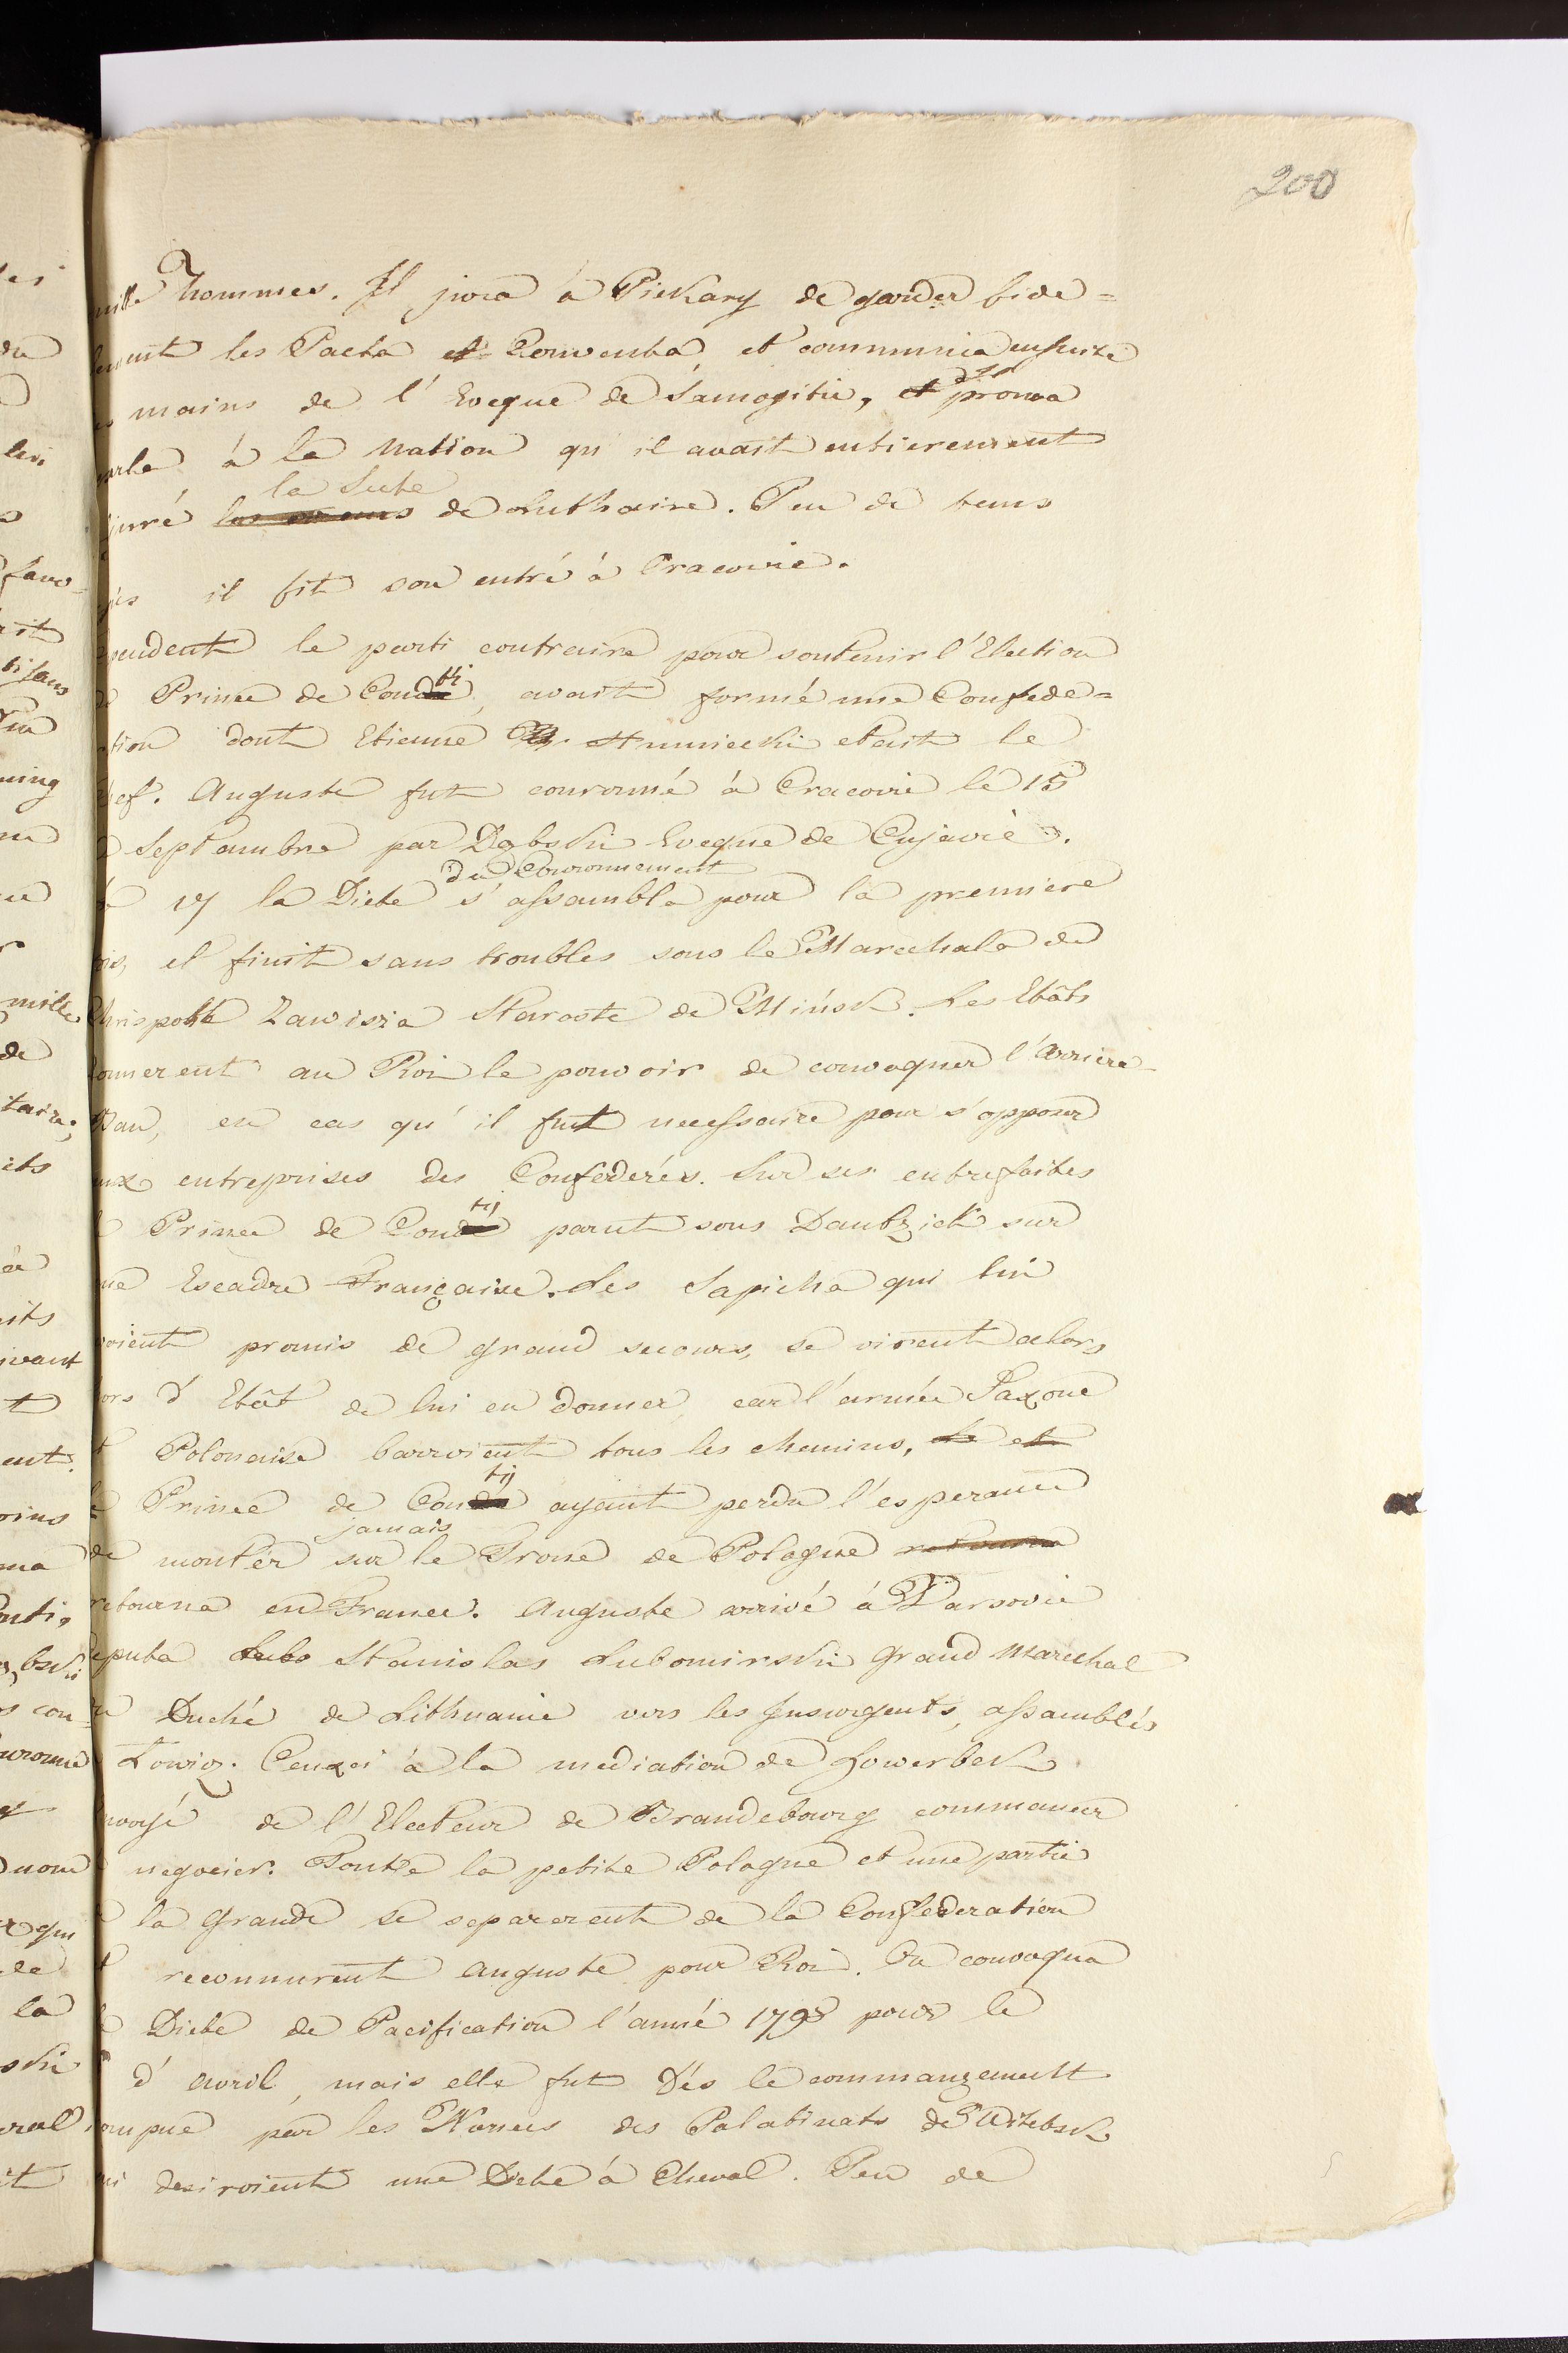 200
mille hommes. Il jura à Piekary de garder fide=
lement les Pacta et Conventa, et communia ensuite
mains de l'Eveque de Samogitie, et prouva
parla à la Nation qu'il avait entierement
juré les erreurs la Secte de Luthaire. Peu de tems
il fit son entré à Cracovie.
pendent le parti contraire pour soutenir l'Election
Prince de Condé ti, avait formé une Confede=
ation dont Etienne Humiecki etait le
chef. Auguste fut couronné à Cracovie le 15
Septambre par Dąbski Eveque de Cujavie.
17 la Diete du Couronnement s'assambla pour la premiere
fois, et finit sans troubles sous le Marechala de
Chrispotte Zawisza Staroste de Mińsk. Les Etâts
donnerent au Roi le pouvoir de convoquer l'Arriere-
Ban, en cas qu'il fut necessaire pour s'opposer
aux entreprises des Confederés. Sur ses entrefaites
Prince de Condé tij parut sous Dantzick sur
une Escadre Française. Les Sapieha qui lui
avoient promis de grand secours, se virent alors
hors d'Etât de lui en donner, car l'armée Saxone
et Polonaise barroient tous les chemins, et
le Prince de Condé tij ayant perdu l'esperance
de monter jamais sur le Trone de Pologne retourna
retourna en France. Auguste arrivé à Varsovie
deputa Lubo Stanislas Lubomirski Grand Marechal
Duché de Lithuanie vers les Insurgents, assamblés
Łowicz. Ceuxci à la mediation de Howerbeck
Envoyé de l'Electeur de Brandebourg commancer
negocier. Toutte la petite Pologne et une partie
la Grande se separerent de la Confederation
et reconnurent Auguste pour Roi. On convoqua
Diete de Pacification l'anné 1798 pour le
d'Avril, mais elle fut dés le commanzement
rompue par les Nonces des Palatinats de Witebsk
qui desiroient une Diete à Cheval. Peu de